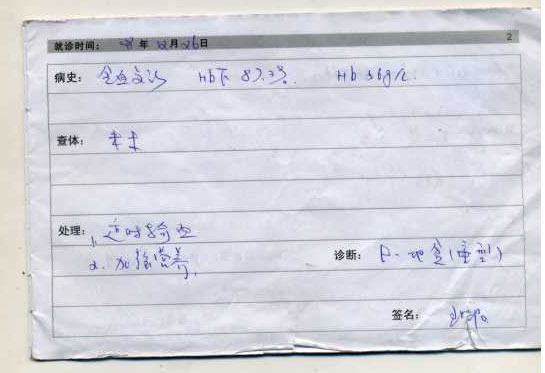 就诊时间: 年 12 月 26 日 2
病史: Hb下 87.3% Hb 56g/L
查体:
处理: 1. 定时输血
2. 加强营养
诊断: β-地贫(重型)
签名: